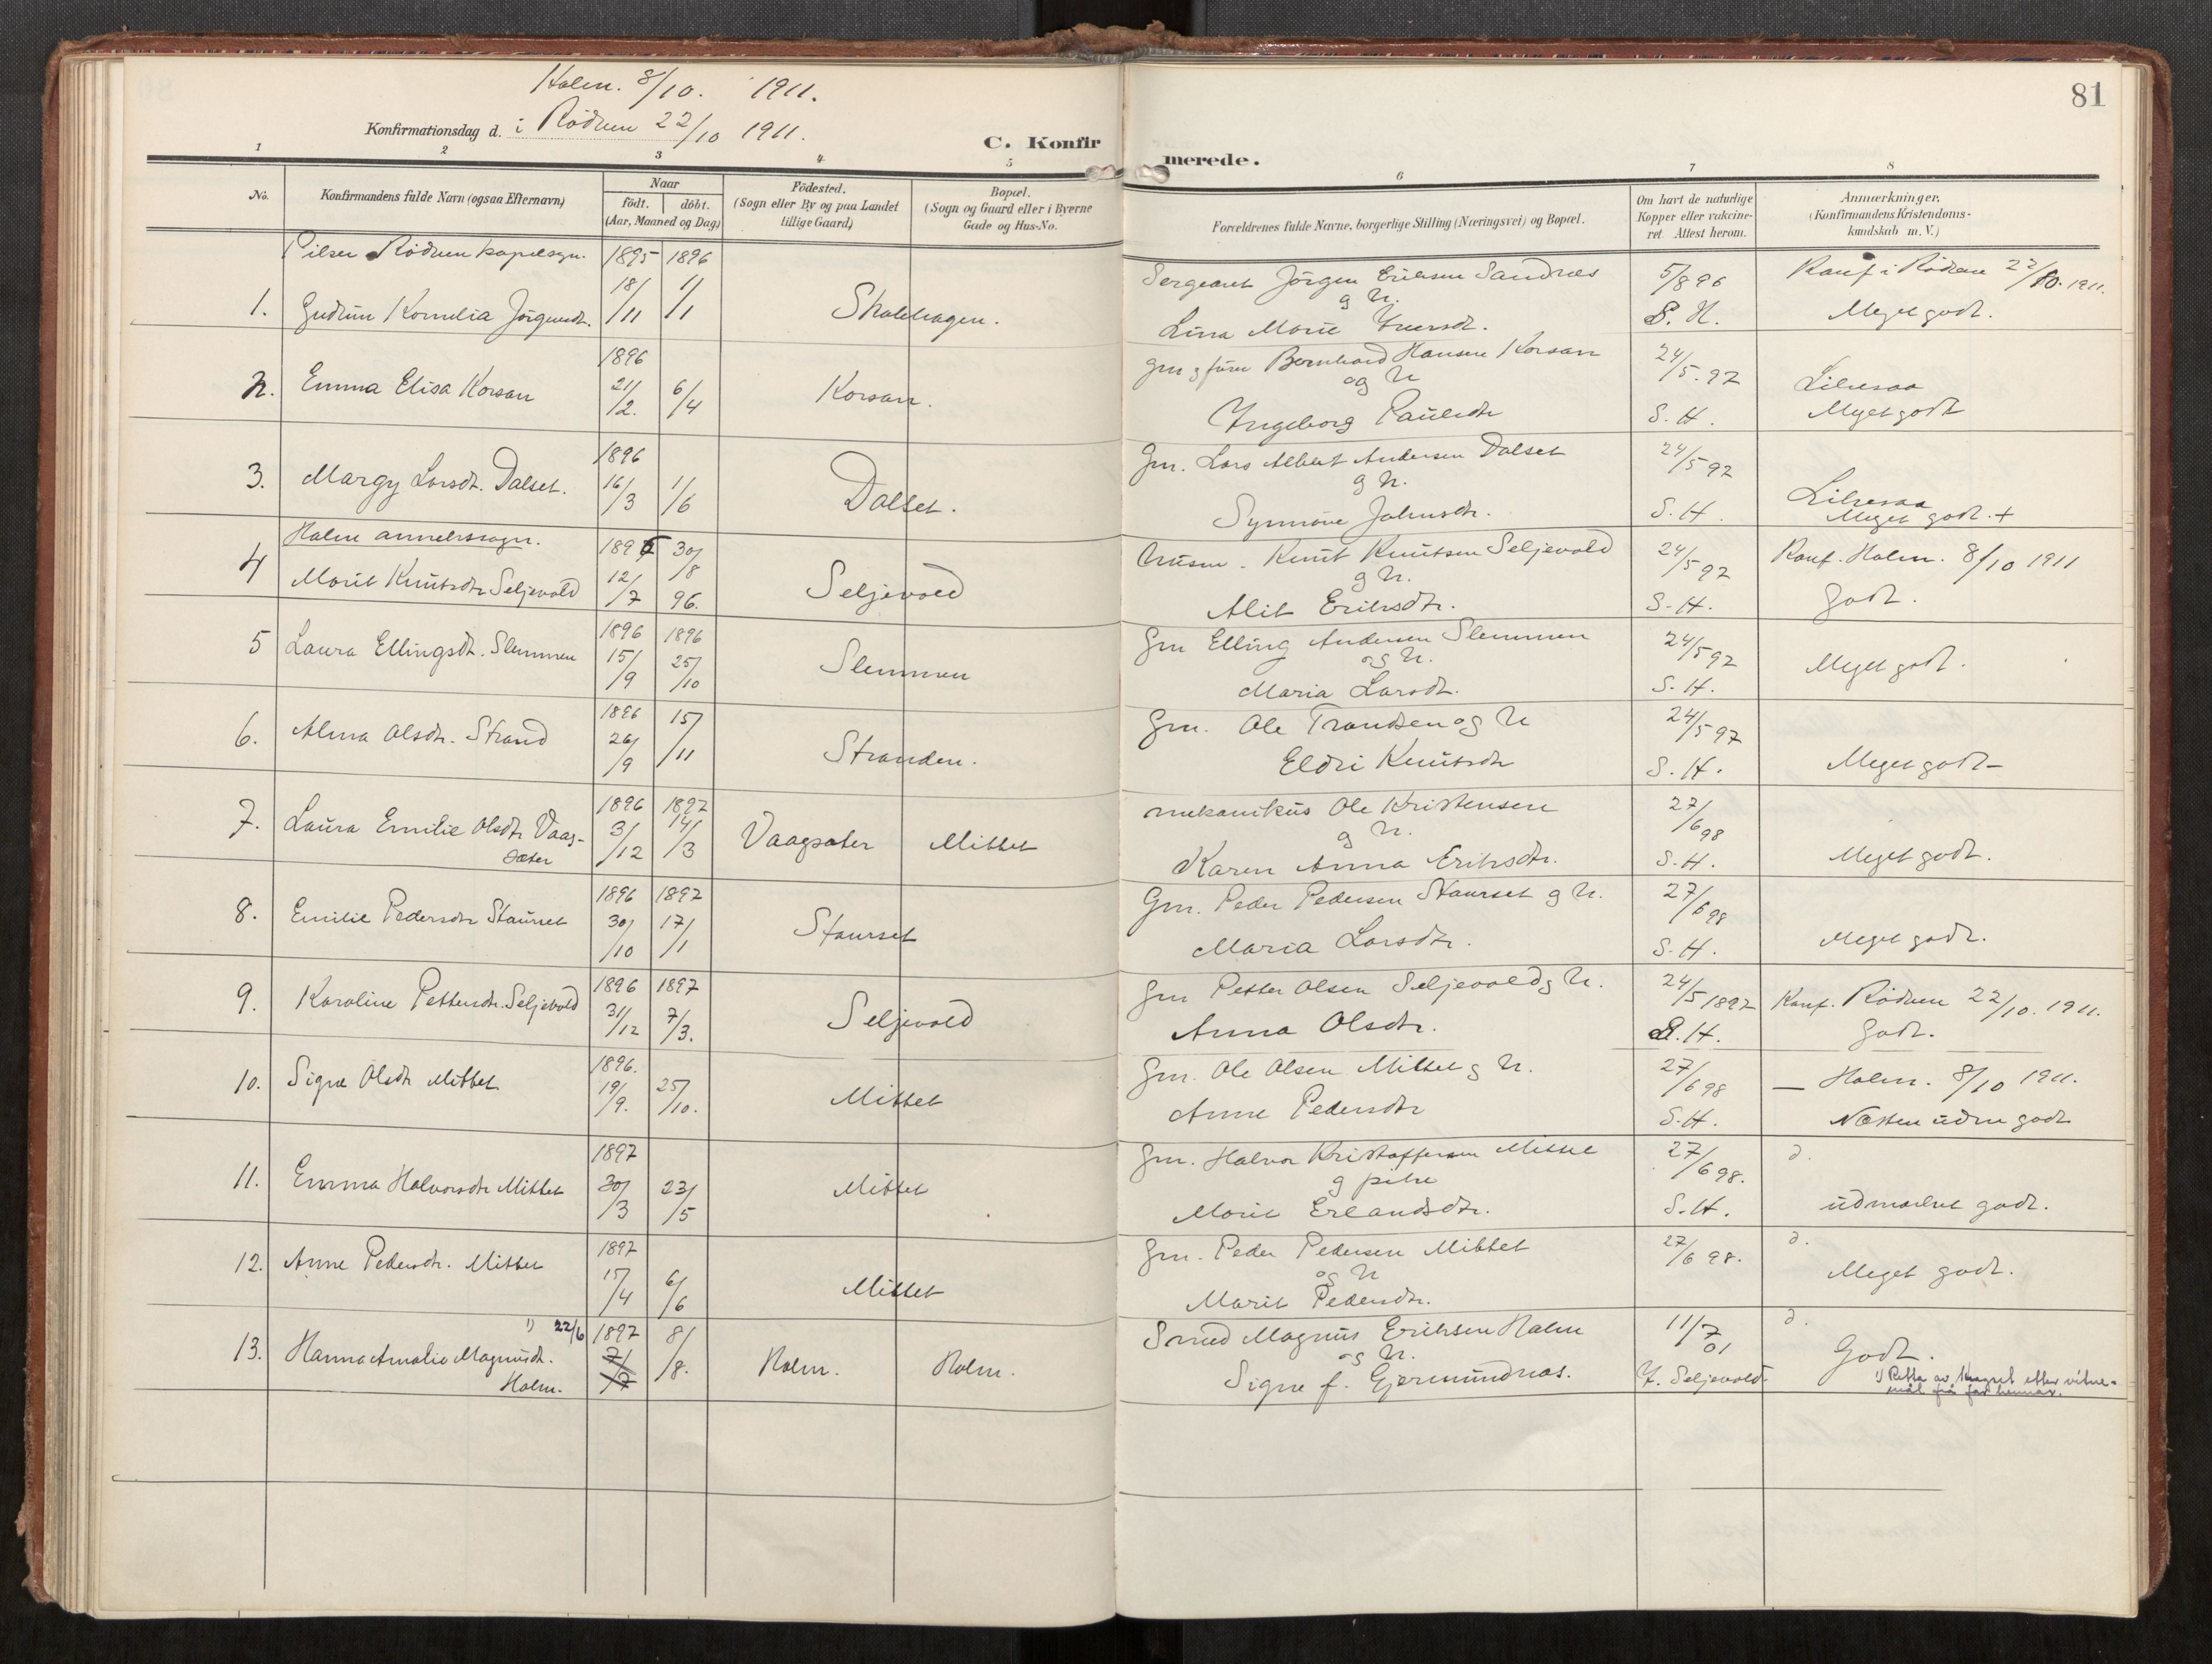 81
Holm. 8/10. 1911.
Konfirmationsdag d. i Rödven 22/10 1911.
C. Konfirmerede.
1 2 3 4 5 6 7 8
No.
Konfirmandens fulde Navn (ogsaa Efternavn)
Naar
födt. döbt.
(Aar, Maaned og Dag)
Födested.
(Sogn eller By og paa Landet
tillige Gaard)
Bopæl.
(Sogn og Gaard eller i Byerne
Gade og Hus-No.
Forældrenes fulde Navne, borgerlige Stilling (Næringsvei) og Bopæl.
Om havt de naturlige
Kopper eller vakcine-
ret. Attest herom.
Anmærkninger.
(Konfirmandens Kristendoms-
kundskab m. V.)
Piker Rödven kapelsogn.
1. Gudrun Kornelia Jörgensdt.
1895 18/11
1896 1/1
Skolehagen.
Sergeant Jörgen Eriksen Sandnes
g h.
Lina Marie Iversdt.
5/8 96
S. H.
Konf i Rödven 22/10. 1911.
Meget godt.
2. Emma Elisa Korsan
1896 21/2.
6/4
Korsan.
Gm g fører Bernhard Hansen Korsan
og h
Ingeborg Paulsdtr
24/5. 97
S. H.
Lilresaa
Meget godt
3. Margy Larsdt. Dalset.
1896 16/3
1/6
Dalset.
Gm. Lars Albert Andersen Dalset
g h.
Synnöve Johnsdtr.
24/5 97
S. H.
Lilresaa
Meget godt. +
Holm annekssogn.
4 Marit Knutsdtr Seljevold
1896 12/7
30/8 96.
Seljevold
Husm. Knut Knutsen Seljevold
g h.
Alit Eriksdtr.
24/5 97
S. H.
Konf. Holm. 8/10 1911
Godt.
5 Laura Ellingsdt. Slemmen
1896 15/9
1896 25/10
Slemmen
Gm Elling Andersen Slemmen
og h.
Maria Larsdt.
24/5 97
S. H.
Meget godt.
6. Alma Olsdtr. Strand
1896 26/9
15/11
Stranden.
Gm. Ole Trondsen og h
Eldri Knutsdtr
24/5 97
S. H.
Meget godt –
7. Laura Emilie Olsdtr Vaag-
sæter
1896 3/12
1897 14/3
Vaagsæter Mittet
mekanikus Ole Kristensen
g h.
Karen Anna Eriksdtr.
27/6 98
S. H.
Meget godt.
8. Emilie Pedersdtr Staurset
1896 30/10
1897 17/1
Staurset
Gm. Peder Pedersen Staurset g h.
Maria Larsdtr.
27/6 98
S. H.
Meget godt.
9. Karoline Pettersdtr. Seljevold
1896 31/12
1897 7/3.
Seljevold
Gm Petter Olsen Seljevold g h.
Anna Olsdtr.
24/5 1897
S. H.
Konf. Rödven 22/10. 1911.
Godt.
10. Signe Olsdtr Mittet
1896. 19/9.
25/10.
Mittet
Gm. Ole Olsen Mittet g h.
Anne Pedersdtr
27/6 98
S. H.
— Holm. 8/10 1911.
Næsten udm godt
11. Emma Halvorsdtr Mittet
1897 30/3
23/5
Mittet
Gm. Halvor Kristoffersen Mittet
g pike
Marit Erlandsdtr.
27/6 98.
S. H.
d.
udmærket godt.
12. Anne Pedersdtr. Mittet
1897 15/4
6/6
Mittet
Gm. Peder Pedersen Mittet
og h
Marit Pedersdtr.
27/6 98.
d.
Meget godt.
13. Hanna Amalie Magnusdt.
Holm.
1) 22/6 1897 7/7
8/8.
Holm. Holm.
Smed Magnus Eriksen Holm
og h.
Signe f. Gjermundnæs.
11/7 01
Y. Seljevold.
d.
Godt.
1) Retta av etter vitne-
mål frå far hennar.